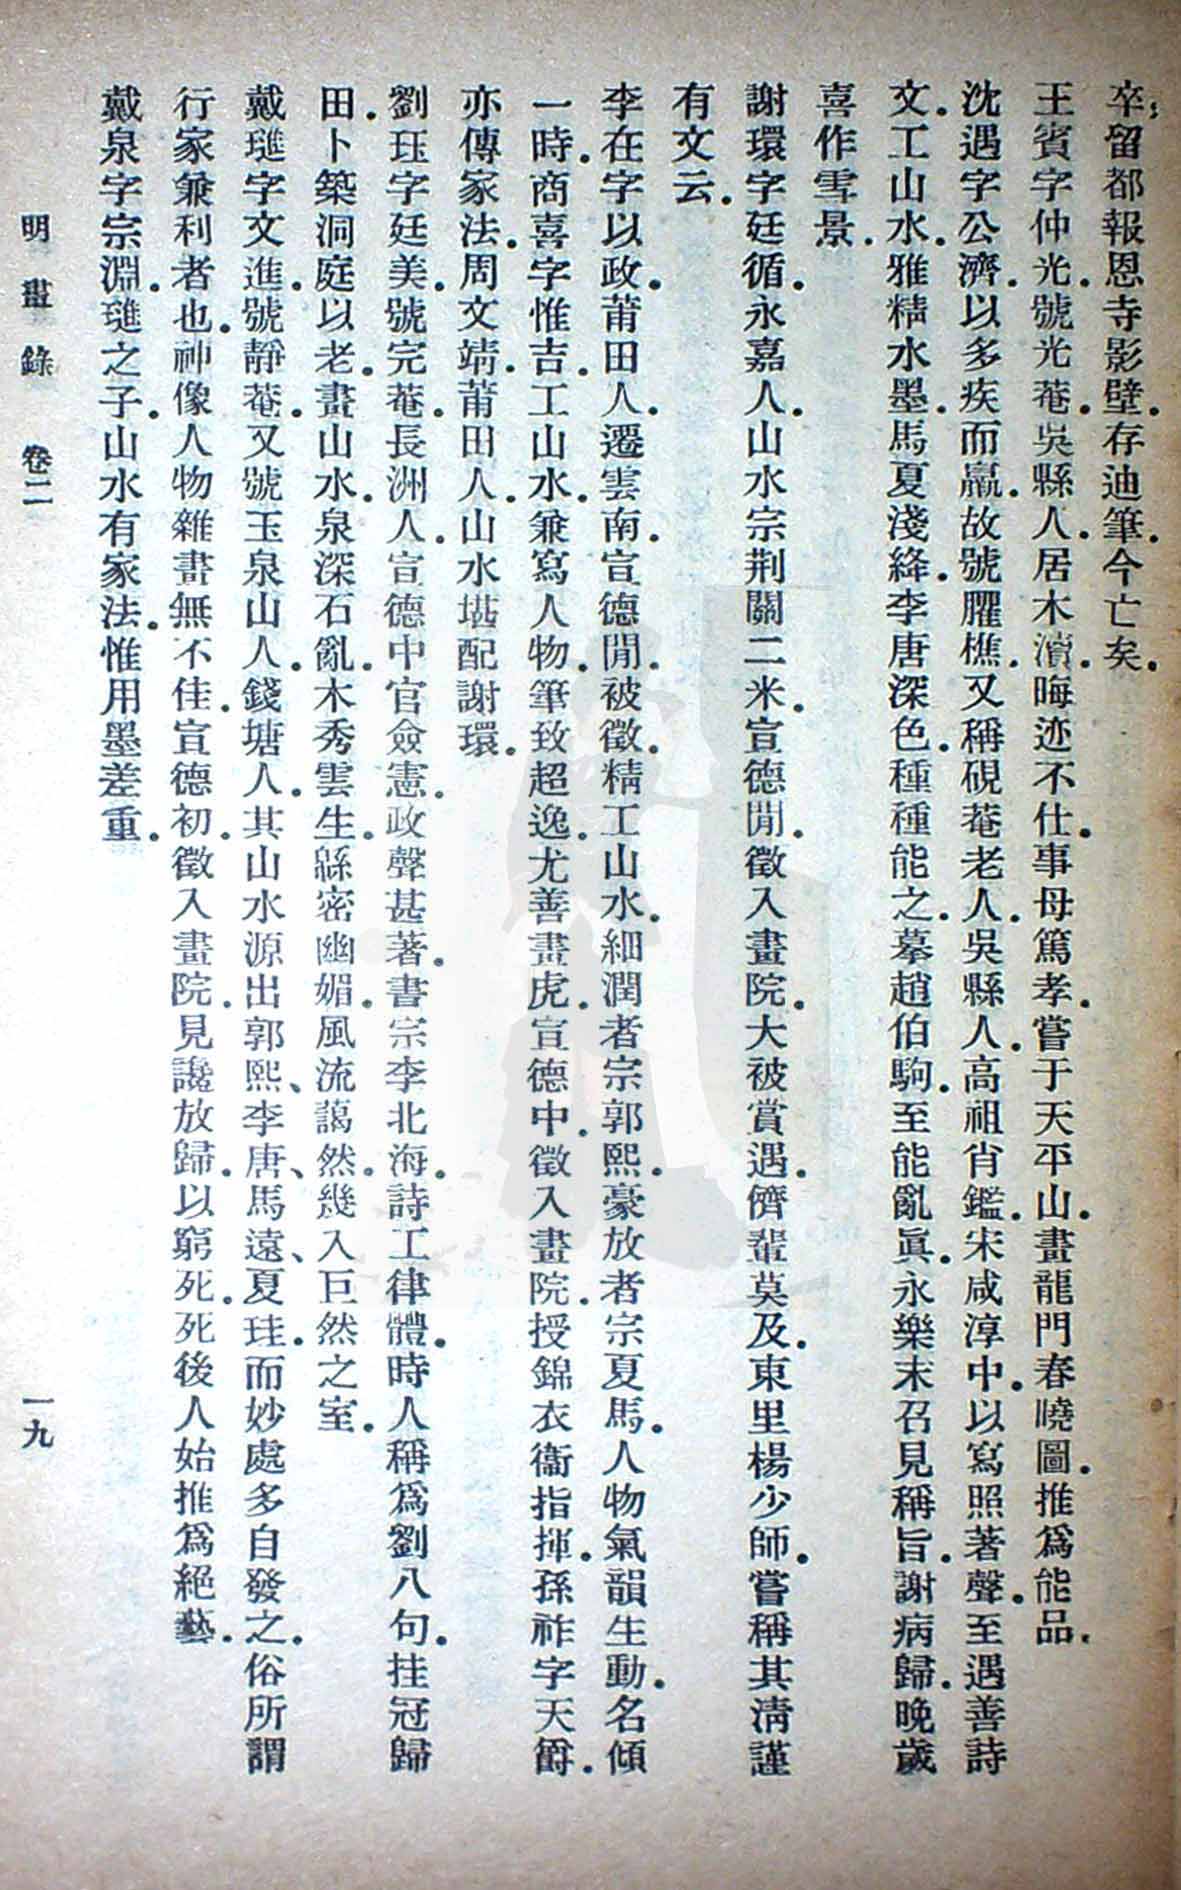 卒留都報恩寺影壁存迪筆今亡矣
王賓字仲光號光菴吳縣人居木瀆晦迹不仕事母篤孝嘗于天平山畫龍門春曉圖推爲能品
沈遇字公濟以多疾而羸故號臞樵又稱硯菴老人吳縣人高祖肖鑑宋咸淳中以寫照著聲至遇善詩
文工山水雅精水墨馬夏淺絳李唐深色種種能之摹趙伯駒至能亂眞永樂末召見稱旨謝病歸晚歲
喜作雪景
謝環字廷循永嘉人山水宗荆關二米宣德閒徵入畫院大被賞遇儕輩莫及東里楊少師嘗稱其淸謹
有文云
李在字以政莆田人遷雲南宣德閒被徵精工山水細潤者宗郭熙豪放者宗夏馬人物氣韻生動名傾
一時商喜字惟吉工山水兼寫人物筆致超逸尤善畫虎宣德中徵入畫院授錦衣衞指揮孫祚字天爵
亦傳家法周文靖莆田人山水堪配謝環
劉珏字廷美號完菴長洲人宣德中官僉憲政聲甚著書宗李北海詩工律體時人稱爲劉八句挂冠歸
田卜築洞庭以老畫山水泉深石亂木秀雲生緜密幽媚風流藹然幾入巨然之室
戴璡字文進號靜菴又號玉泉山人錢塘人其山水源出郭熙、李唐、馬遠、夏珪而妙處多自發之俗所謂
行家兼利者也神像人物雜畫無不佳宣德初徵入畫院見讒放歸以窮死死後人始推爲絕藝
戴泉字宗淵璡之子山水有家法惟用墨差重
明畫錄 卷二 一九